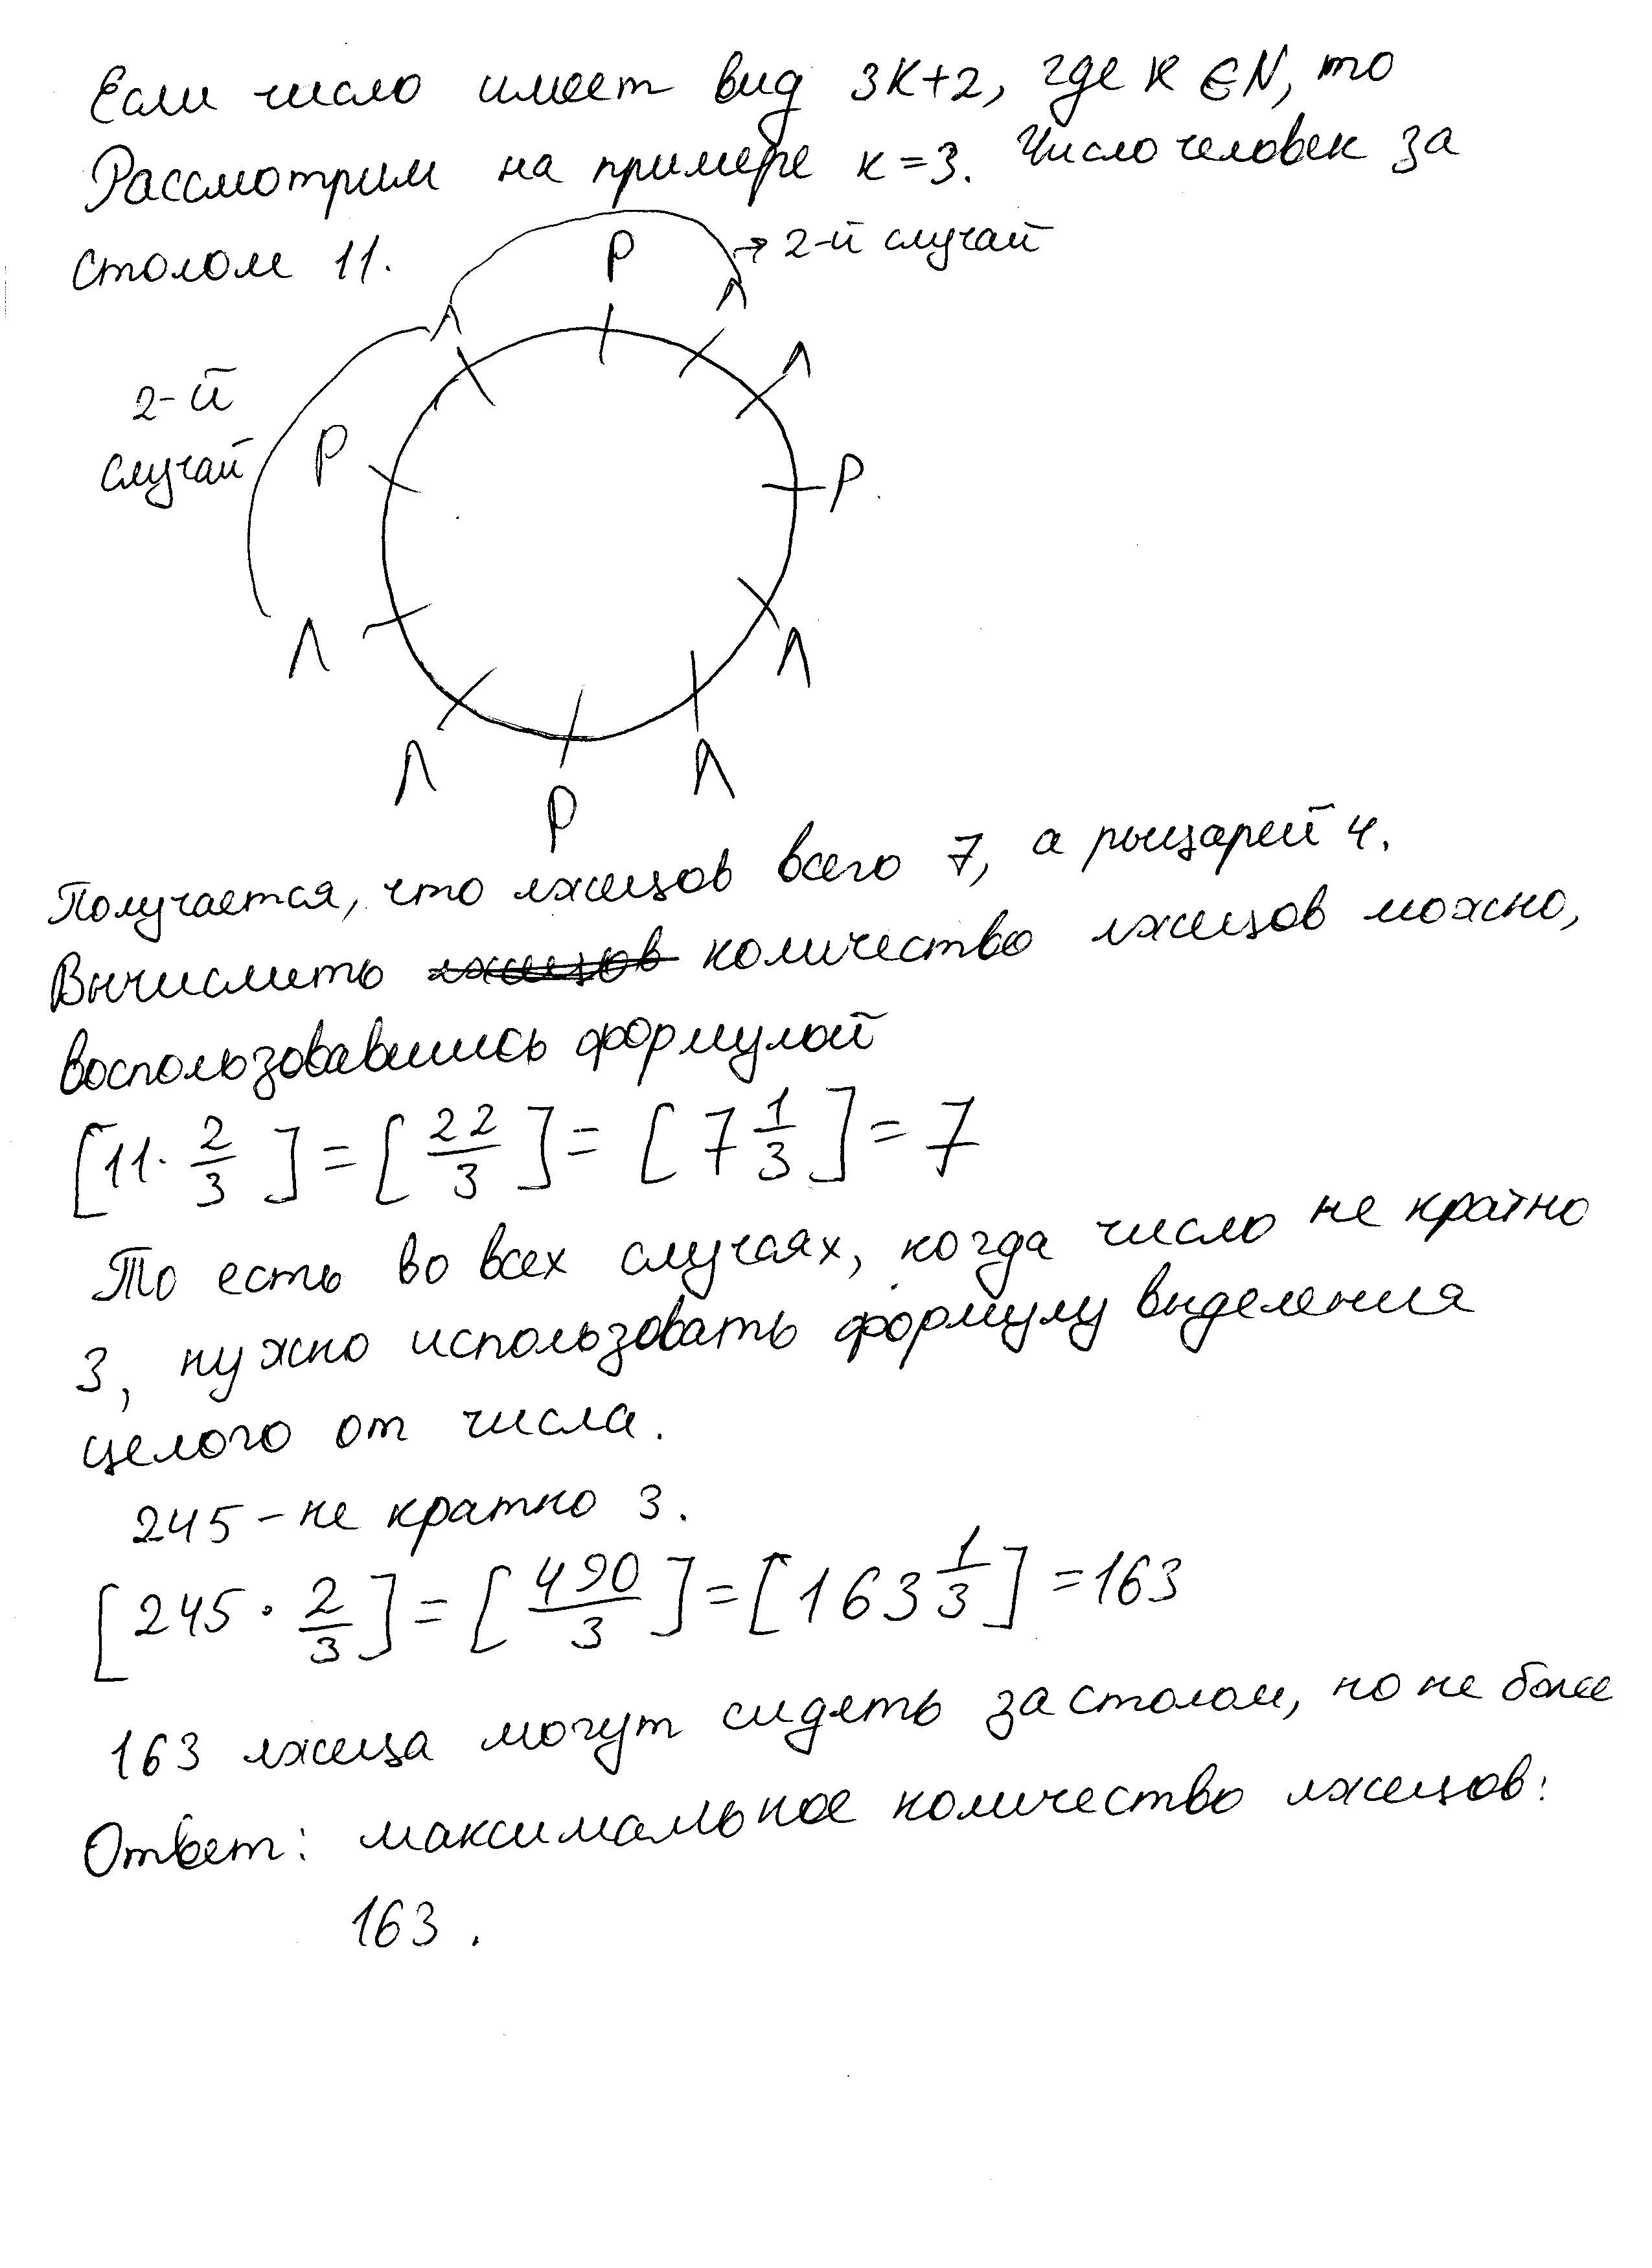 Если число имеет вид 3К+2, где К ∈ N, то
Рассмотрим на примере к=3. Число человек за
столом 11.
Р
→ 2-й случай
Л
Л
Л
2-й
случай
Р
Р.
Л
Л
Л
Л
Р
Получается, что лжецов всего 7, а рыцарей 4.
Вычислить лжецов количество лжецов можно,
воспользовавшись формулой
[11·2/3] = [22/3] = [7 1/3] = 7
То есть во всех случаях, когда число не кратно
3, нужно использовать формулу выделения
целого от числа.
245 – не кратно 3.
[245·2/3] = [490/3] = [163 1/3] = 163
163 лжеца могут сидеть за столом, но не более
Ответ: максимальное количество лжецов:
163.